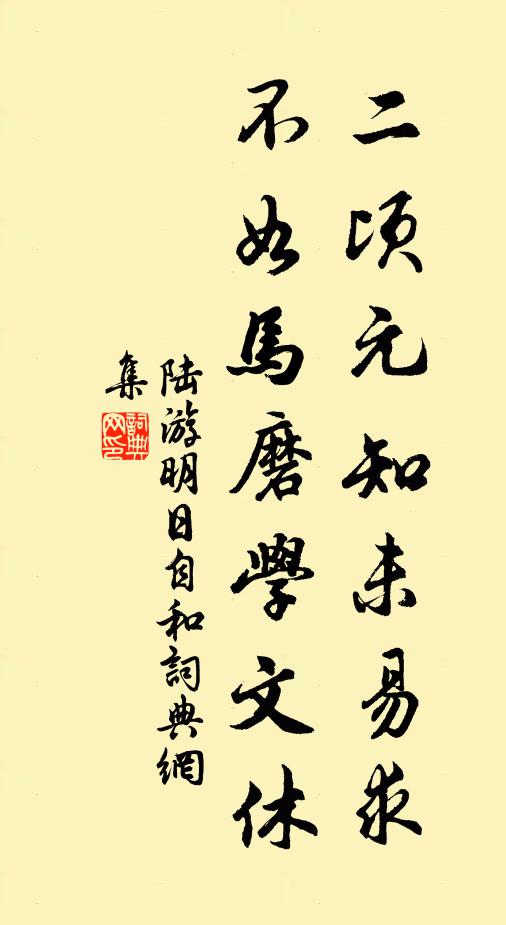 二頃元知未易求
不如馬磨學文休
陆游明日自和詞典網
集
詞典网印